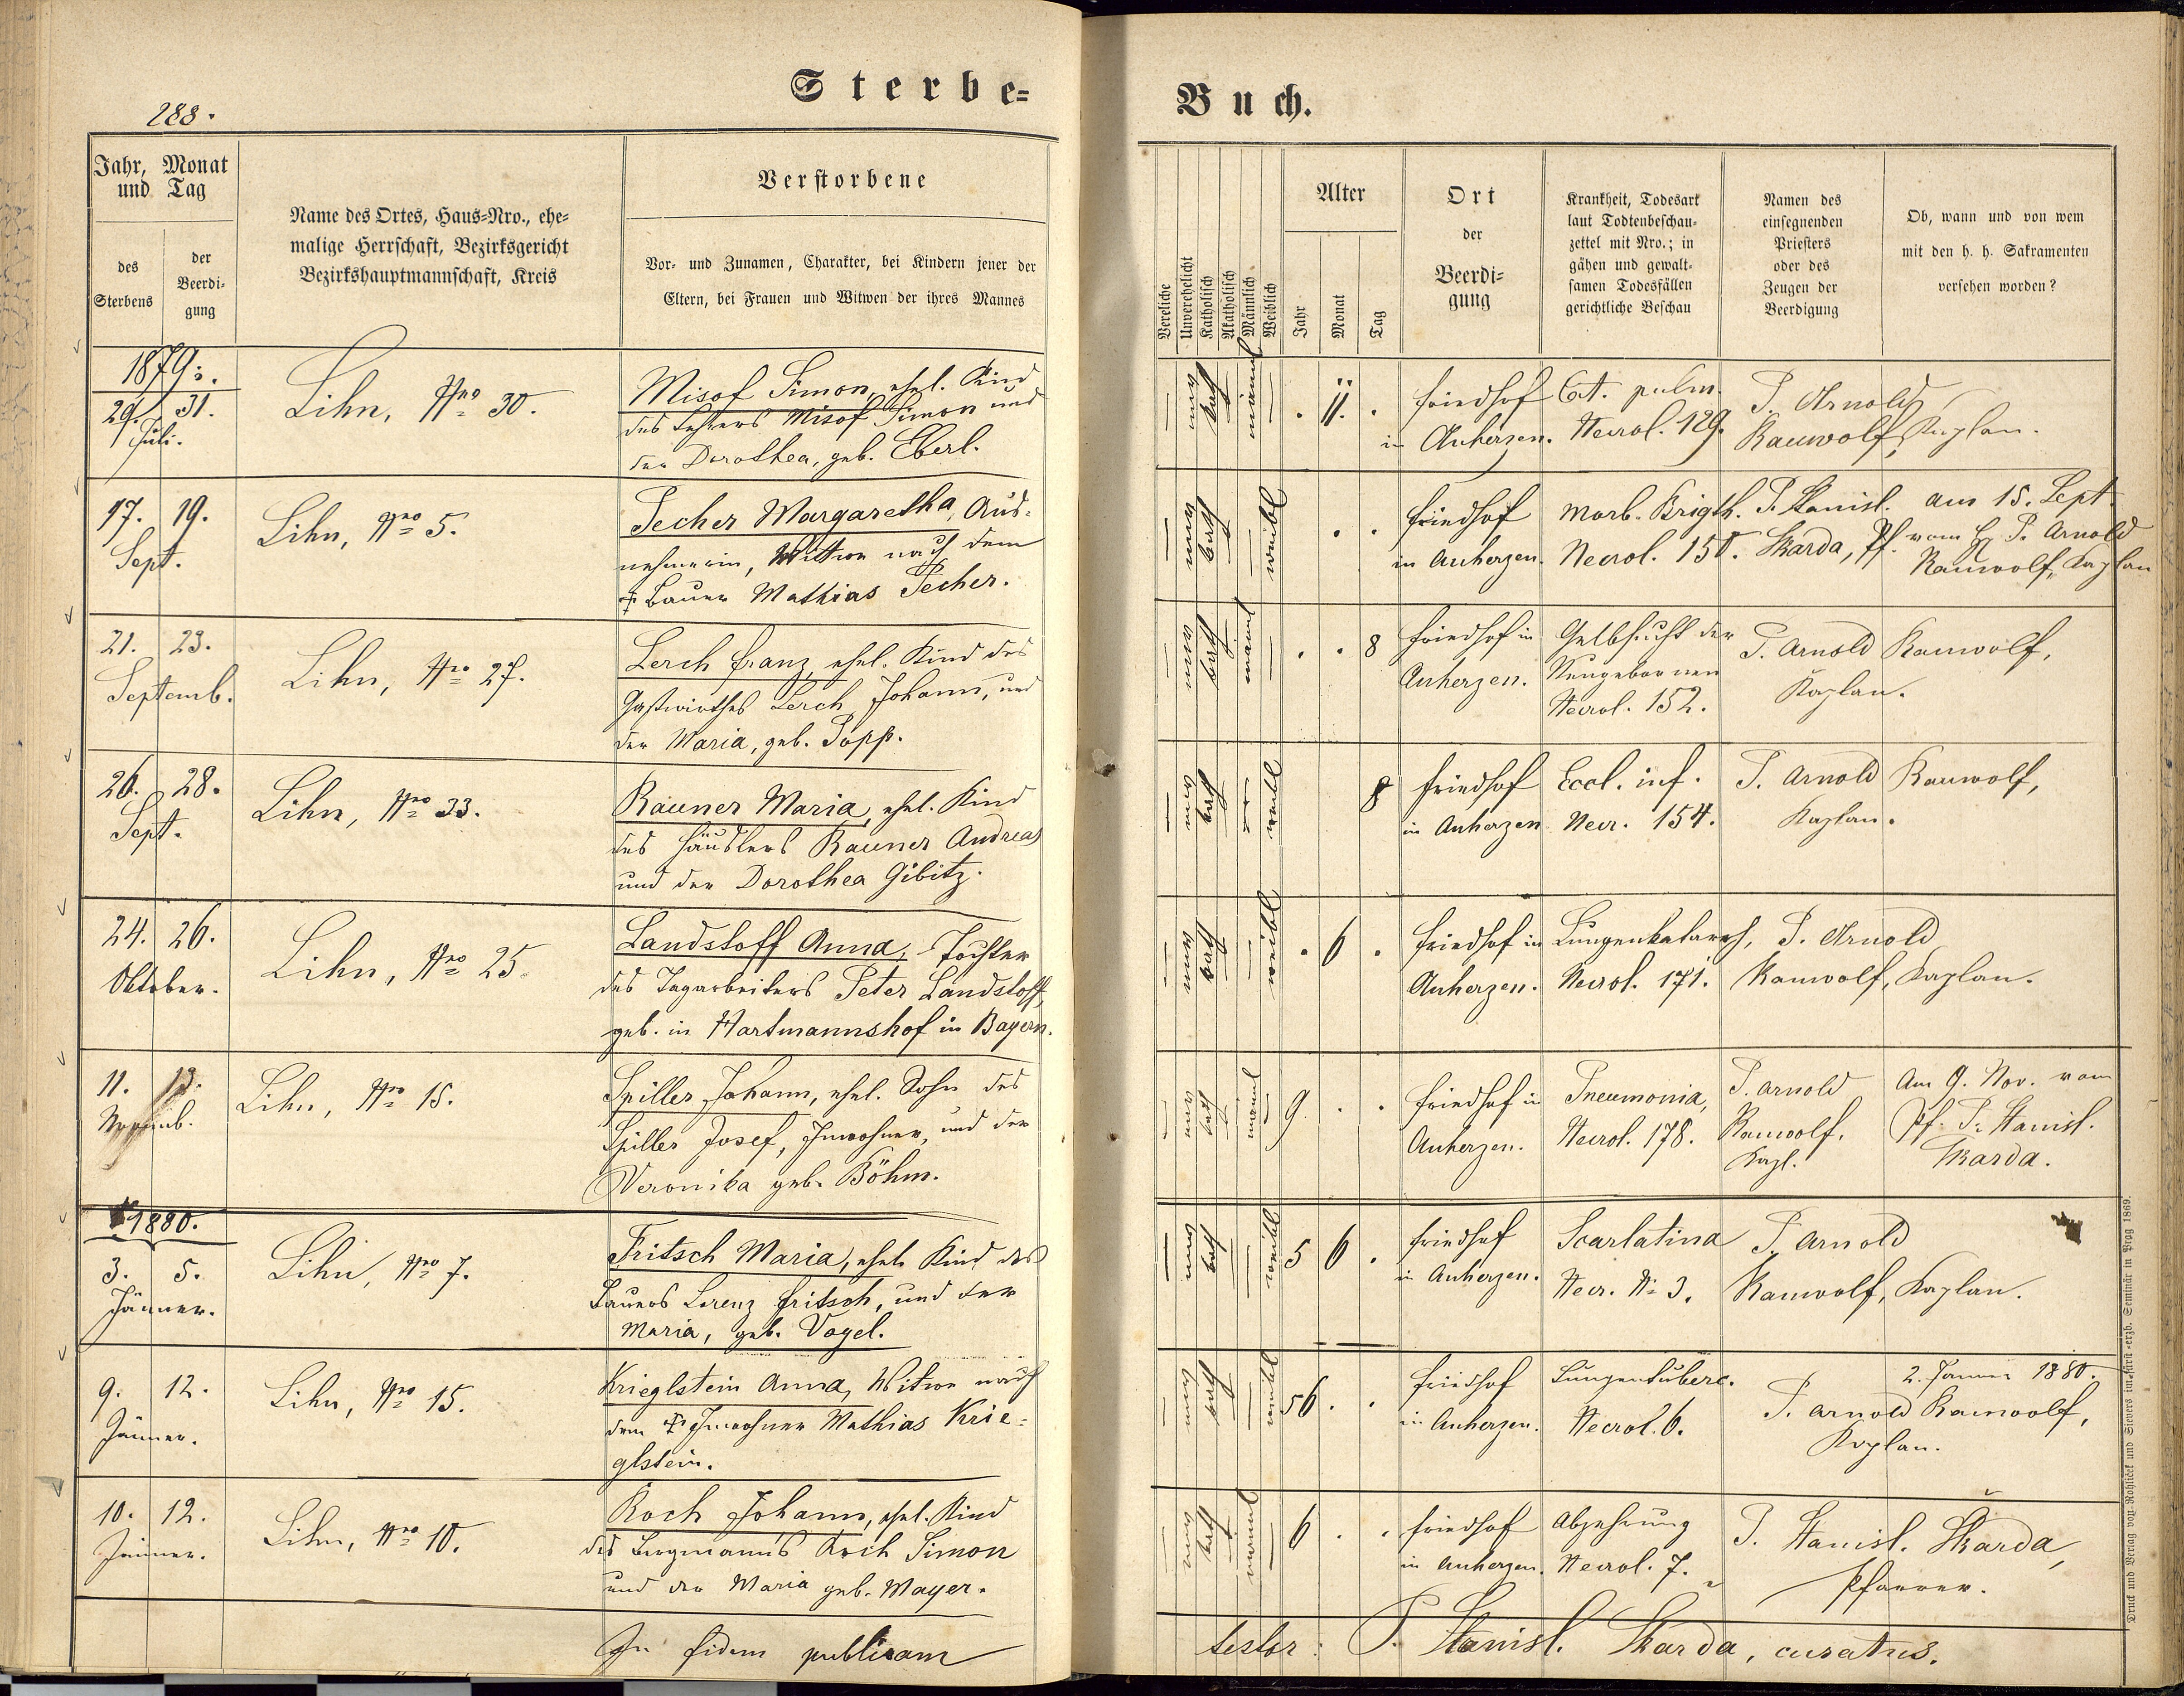 Sterbe-
288.
Jahr, Monat
und Tag
des
Sterbens
der
Beerdi-
gung
Name des Ortes, Haus-Nro., ehe-
malige Herrschaft, Bezirksgericht
Bezirkshauptmannschaft, Kreis
Verstorbene
Vor- und Zunamen, Charakter, bei Kindern jener der
Eltern, bei Frauen und Witwen der ihres Mannes
1879.
29. 31.
Juli.
Lihn, Nro 30.
Misof Simon, ehel. Kind
des Lehrers Misof Simon und
der Dorothea, geb. Eberl.
17. 19.
Sept.
Lihn, Nro 5.
Pecher Margaretha, Aus-
nehmerin, Witwe nach dem
† Bauer Mathias Pecher.
21. 23.
Septemb.
Lihn, Nro 27.
Lerch Franz, ehel. Kind des
Gastwirthes Lerch Johann, und
der Maria, geb. Popp.
26. 28.
Sept.
Lihn, Nro 33.
Rauner Maria, ehel. Kind
des Häuslers Rauner Andreas
und der Dorothea Gibitz.
24. 26.
Oktober.
Lihn, Nro 25.
Landsloff Anna, Tochter
des Tagarbeiters Peter Landsloff,
geb. in Hartmannshof in Bayern.
11. 13.
Novemb.
Lihn, Nro 15.
Spiller Johann, ehel. Sohn des
Spiller Josef, Inwohner, und der
Veronika geb. Böhm.
1880.
3. 5.
Jänner.
Lihn, Nro 7.
Fritsch Maria, ehel. Kind des
Bauers Lorenz Fritsch, und der
Maria, geb. Vogel.
9. 12.
Jänner.
Lihn, Nro 15.
Krieglstein Anna, Witwe nach
dem † Inwohner Mathias Krie-
glstein.
10. 12.
Jänner.
Lihn, Nro 10.
Koch Johann, ehel. Kind
des Bergmanns Koch Simon
und der Maria geb. Mayer.
In fidem publicam
Buch.
Verehliche
Unverehelicht
Katholisch
Akatholisch
Männlich
Weiblich
Alter
Jahr
Monat
Tag
Ort
der
Beerdi-
gung
Krankheit, Todesart
laut Todtenbeschau-
zettel mit Nro.; in
gähen und gewalt-
samen Todesfällen
gerichtliche Beschau
Namen des
einsegnenden
Priesters
oder des
Zeugen der
Beerdigung
Ob, wann und von wem
mit den h. h. Sakramenten
versehen worden?
kath männl 11. Friedhof Cat. pulm. P. Arnold
in Auherzen. Necrol. 129. Rauwolf, Kaplan.
kath weibl Friedhof Morb. Brigth. P. Stanisl. am 15. Sept.
in Auherzen. Necrol. 150. Skarda, Pf. vom H. P. Arnold
Rauwolf, Kaplan
kath männl 8 Friedhof in Gelbsucht der P. Arnold Rauwolf,
Auherzen. Neugebornen Kaplan.
Necrol. 152.
kath weibl 8 Friedhof Eccl. inf. P. Arnold Rauwolf,
in Auherzen Necr. 154. Kaplan.
kath weibl 6 Friedhof in Lungenkatarrh, P. Arnold
Auherzen. Necrol. 171. Rauwolf, Kaplan.
kath männl 9 Friedhof in Pneumonia, P. Arnold Am 9. Nov. vom
Auherzen. Necrol. 178. Rauwolf, Pf. P. Stanisl.
Kapl. Skarda.
kath weibl 5 6 Friedhof Scarlatina P. Arnold
in Auherzen. Necr. No 3. Rauwolf, Kaplan.
kath weibl 56 Friedhof Lungentuberc. 2. Jänner 1880.
in Auherzen. Necrol. 6. P. Arnold Rauwolf,
Kaplan.
kath männl 6 Friedhof Abzehrung P. Stanisl. Skarda,
in Auherzen. Necrol. 7. Pfarrer.
testor: P. Stanisl. Skarda, curatus.